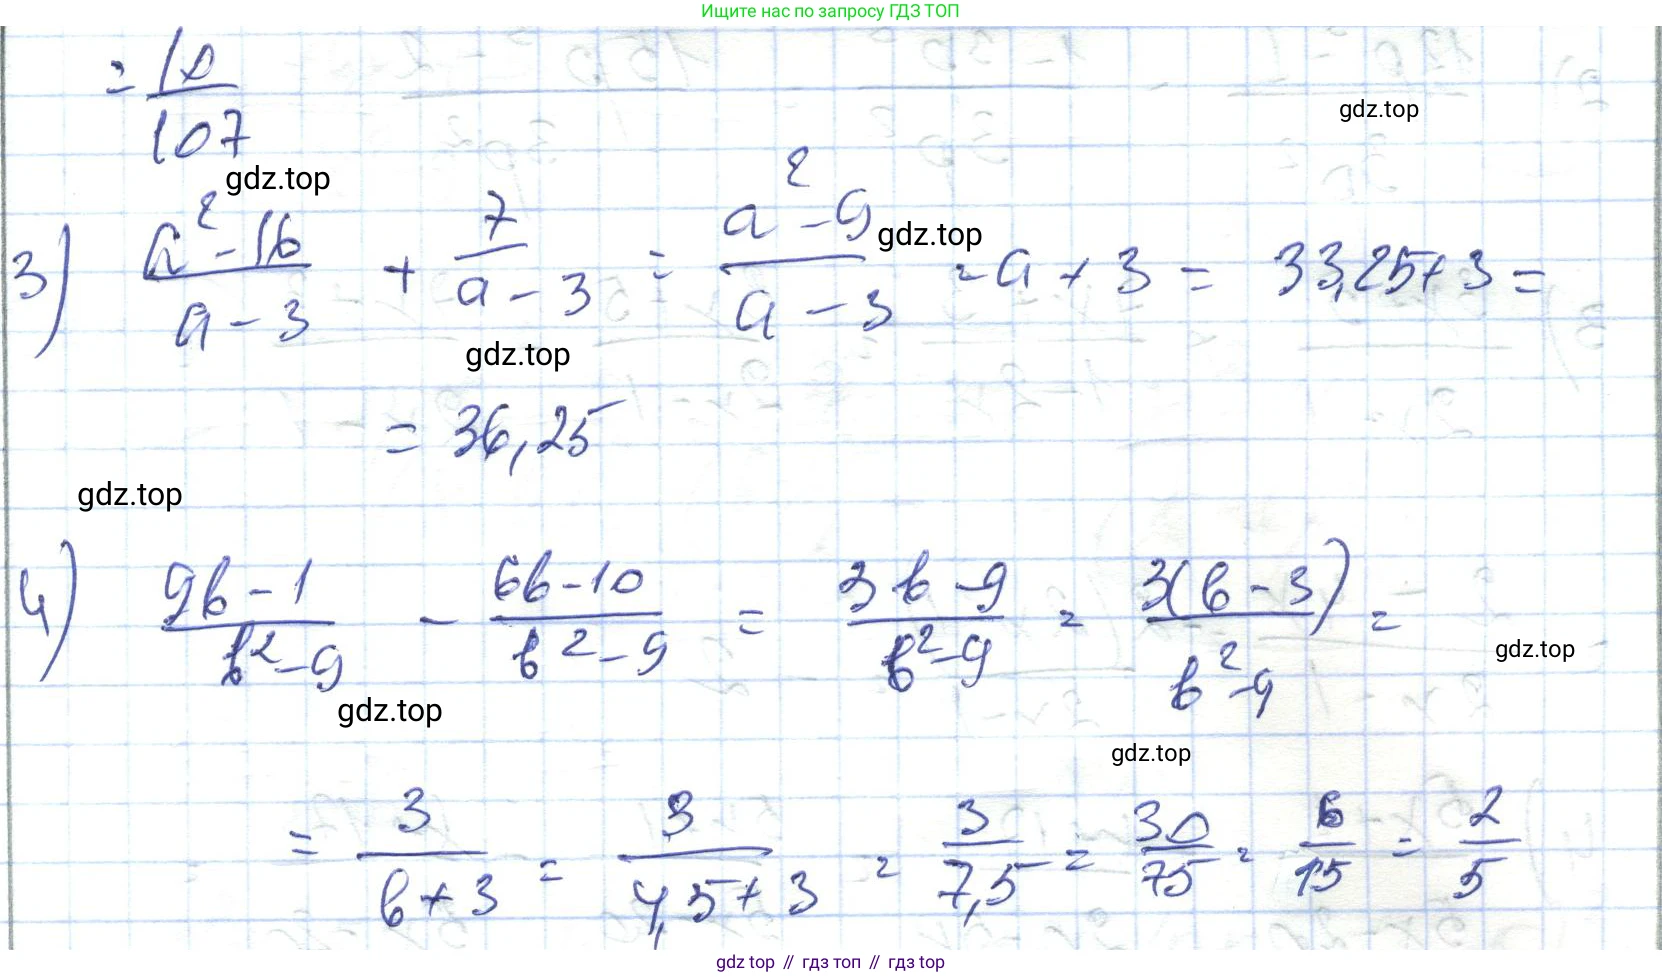 Ищите нас по запросу ГДЗ ТОП
= 10/107
gdz.top
gdz.top
3) (a² - 16)/(a - 3) + 7/(a - 3) = (a² - 9)/(a - 3) = a + 3 = 33,25 + 3 =
gdz.top
gdz.top
= 36,25
gdz.top
4) (9b - 1)/(b² - 9) - (6b - 10)/(b² - 9) = (3b - 9)/(b² - 9) = 3(b - 3)/(b² - 9) =
gdz.top
gdz.top
gdz.top
= 3/(b + 3) = 3/(4,5 + 3) = 3/7,5 = 30/75 = 6/15 = 2/5
gdz top // гдз топ // gdz top